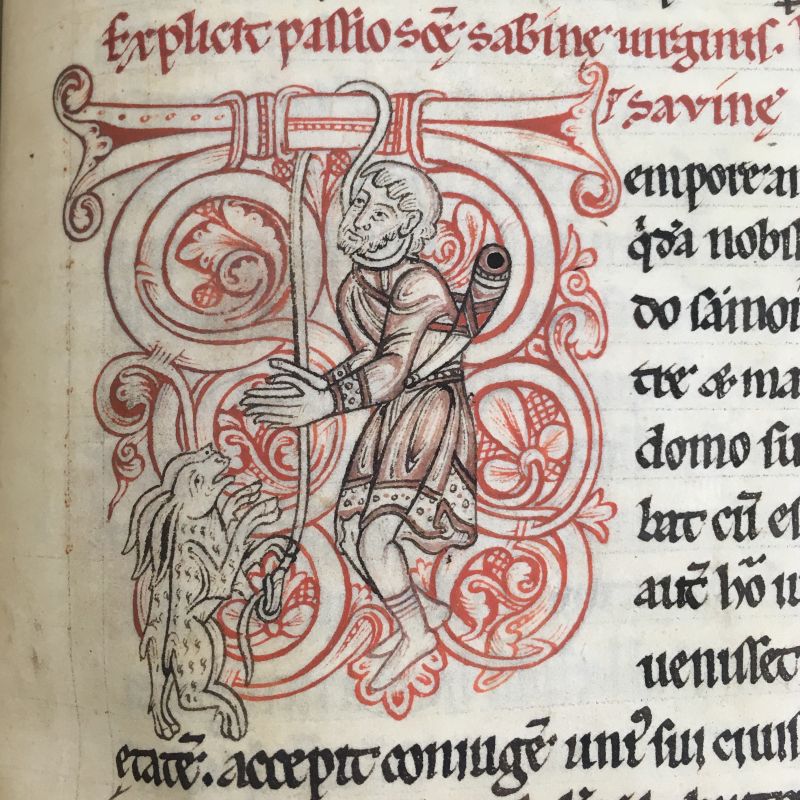 Explicit passio sc̄ę sabinę uirginis.
sauinę
Tempore
q̇da nobil
do
tre & ma
domo su
bat cū es
aut̄ hō u
uenisset
etatē. accepit coniugē uni᾽ sui ciuis